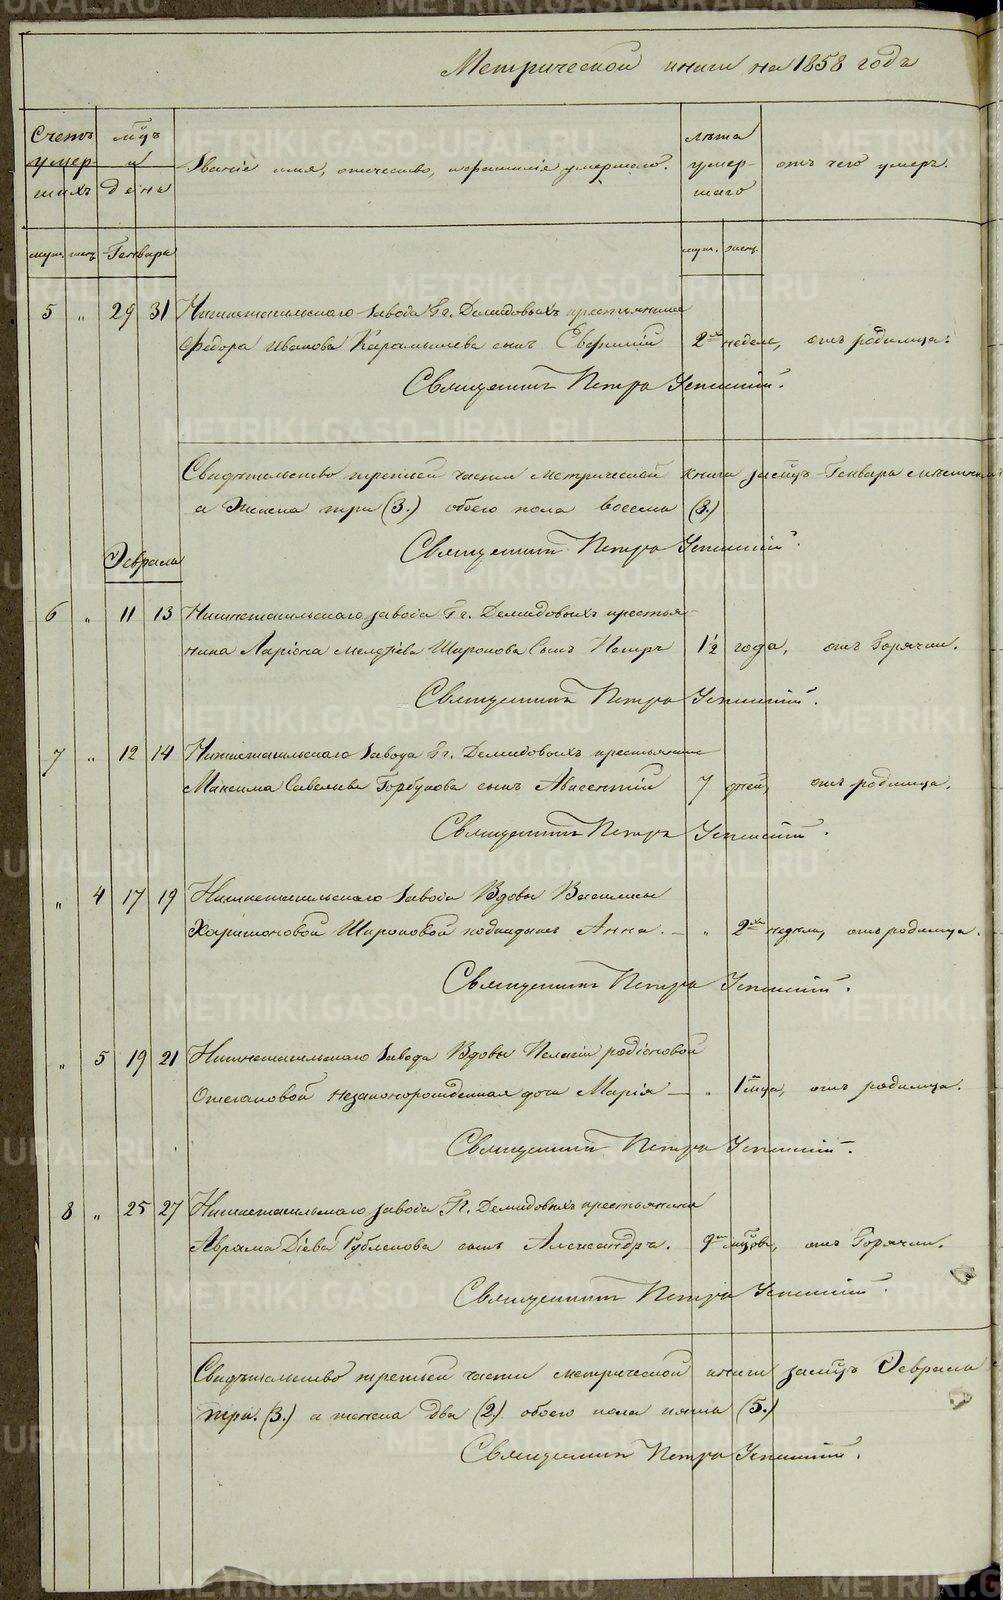 Метрической книги на 1858 года
Счетъ умер- шихъ
мцъ и дена
Званіе имя, отчество, и фамилія умершаго.
лѣта умер- шаго
отъ чего умеръ.
муж. женс. Генваря муж. женс.
5 „ 29 31 Нижнетагильскаго Завода Гг. Демидовыхъ крестьянина
Федора Иванова сынъ Евфимій 2хъ недель, отъ родимца.
Священникъ Петръ
Свидѣтельство третьей части метрической книги за мцъ Генварь
и Женска три (3.) обоего пола восемь (8.)
Священникъ Петръ
Февраль
6 „ 11 13 Нижнетагильскаго завода Гг. Демидовыхъ крестья-
нина Ларіона Широкова Сынъ Петръ 1½ года, отъ Горячки.
Священникъ Петръ
7 „ 12 14 Нижнетагильскаго Завода Гг. Демидовыхъ крестьянина
Максима Савельева Горбунова сынъ Авксентій 7 дней, отъ родимца.
Священникъ Петръ
„ 4 17 19 Нижнетагильскаго Завода Вдовы Василисы
Харитоновой Широковой подкидышъ Анна. — „ 2хъ недель, отъ родимца.
Священникъ Петръ
„ 5 19 21 Нижнетагильскаго Завода Вдовы Пелагіи родіоновой
незаконорожденная дочь Марія — „ 1 мца, отъ родимца.
Священникъ Петръ
8 „ 25 27 Нижнетагильскаго завода Гг. Демидовыхъ крестьянина
Аврама Діева сынъ Александръ. 9 мцовъ, отъ Горячки.
Священникъ Петръ
Свидѣтельство третьей части метрической книги за мцъ Февраль
три. (3.) и женска два (2.) обоего пола пять (5.)
Священникъ Петръ
METRIKI.GASO-URAL.RU